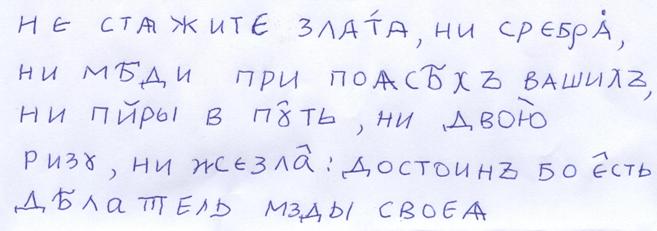 не стѧжите злата́, ни сребра̀,
ни мѣди при поѧсѣхъ вашихъ,
ни пи̑ры в пꙋ̑ть, ни двою̀
ризꙋ, ни жєзла̑: достоинъ бо є̑сть
дѣлатель мзды своеѧ